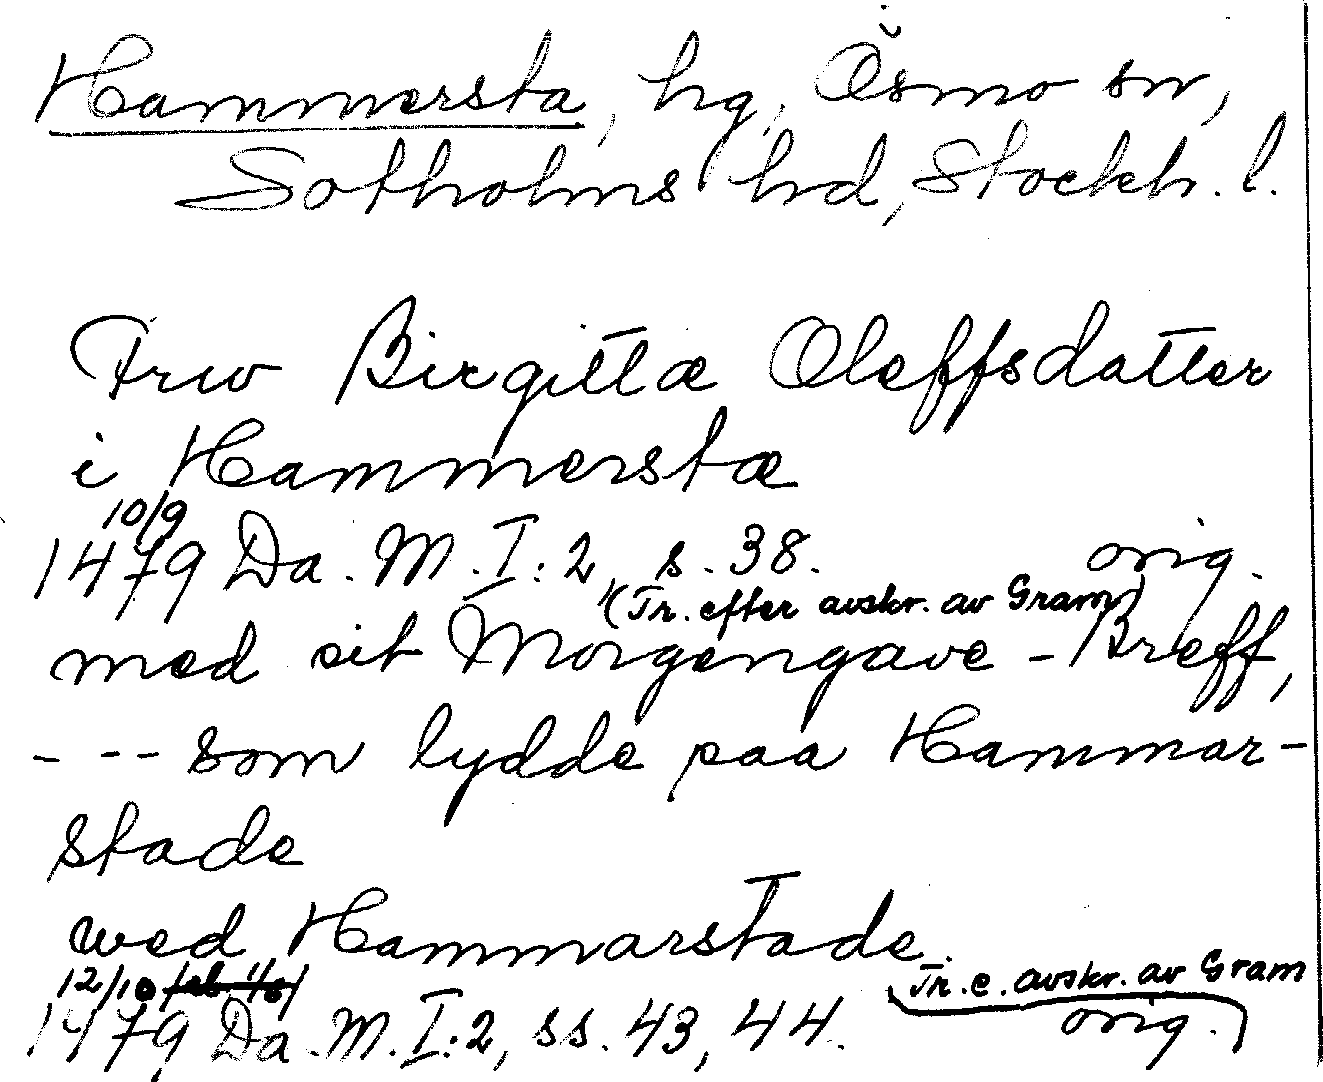 Hammersta, hg, Ösmo sn,
Sotholms hd, Stockh. l.
Frw Birgittæ Oleffsdatter
i Hammerstæ
10/9
1479 Da. M. I:2 s. 38. orig.
(Tr. efter avskr. av Gram)
med sit Morgengave-Breff,
- -- som lydde paa Hammar-
stade
wed Hammarstade.
12/10
Tr. e. avskr. av Gram
1479 Da. M. I:2, ss. 43, 44. orig.